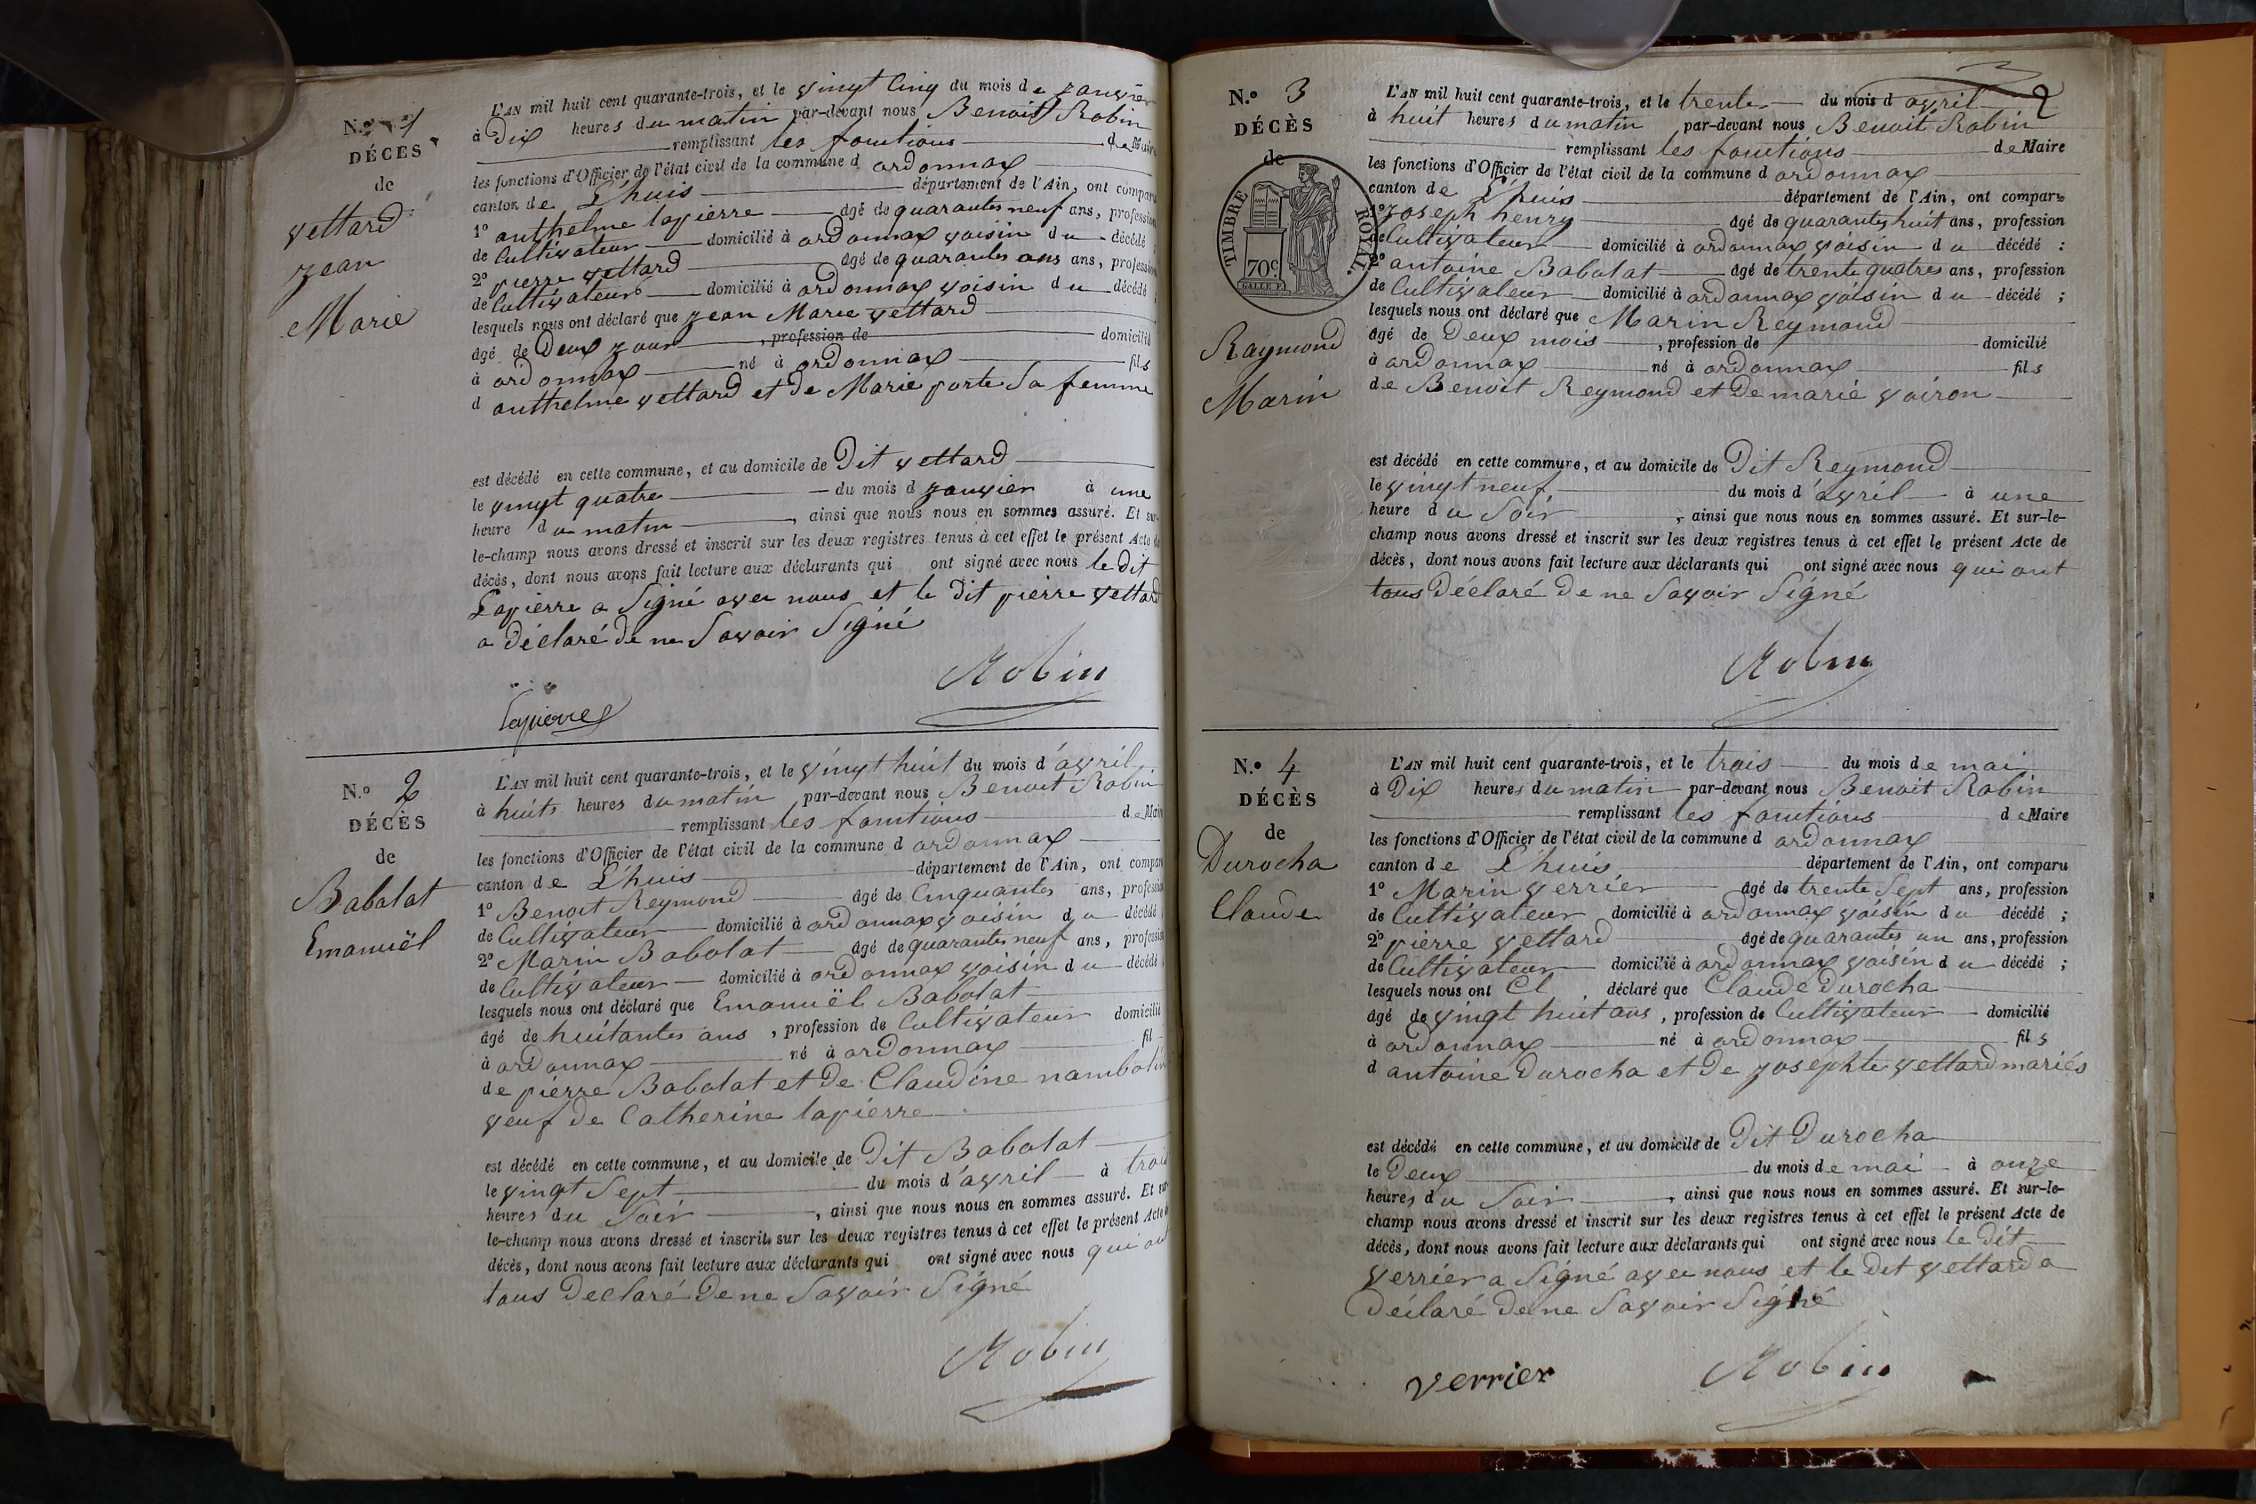 N.º 1
DÉCÈS
de
vettard
jean
Marie
L'AN mil huit cent quarante-trois, et le vingt Cinq du mois de janvier
à Dix heures du matin par-devant nous Benoit Robin
remplissant les fonctions de Maire
les fonctions d'Officier de l'état civil de la commune d ordonnax
canton de L'huis département de l'Ain, ont comparu
1º anthelme lapierre âgé de quarantes neuf ans, profession
de Cultivateur domicilié à ordonnax voisin du décédé ;
2º pierre vettard âgé de quarantes ans, profession
de Cultivateur domicilié à ordonnax voisin du décédé ;
lesquels nous ont déclaré que jean Marie vettard
âgé de Deux jour , profession de domicilié
à ordonnax né à ordonnax fils
d anthelme vettard et de Marie porte Sa femme
est décédé en cette commune, et au domicile de Dit vettard
le vingt quatre du mois d janvier à une
heure du matin , ainsi que nous nous en sommes assuré. Et sur-
le-champ nous avons dressé et inscrit sur les deux registres tenus à cet effet le présent Acte de
décès, dont nous avons fait lecture aux déclarants qui ont signé avec nous le dit
Lapierre a Signé avec nous et le Dit pierre vettard
a Déclaré de ne Savoir Signé
Robin
Lapierre
N.º 2
DÉCÈS
de
Babolat
Emanuël
L'AN mil huit cent quarante-trois, et le vingt huit du mois d'avril
à huits heures du matin par-devant nous Benoit Robin
remplissant les fonctions de Maire
les fonctions d'Officier de l'état civil de la commune d ordonnax
canton de L'huis département de l'Ain, ont comparu
1º Benoit Reymond âgé de Cinquantes ans, profession
de Cultivateur domicilié à ordonnax voisin du décédé
2º Marin Babolat âgé de quarantes neuf ans, profession
de Cultivateur domicilié à ordonnax voisin du décédé
lesquels nous ont déclaré que Emanuël Babolat
âgé de huitantes ans , profession de Cultivateur domicilié
à ordonnax né à ordonnax fil
de pierre Babolat et De Claudine nambotin
veuf de Catherine lapierre
est décédé en cette commune, et au domicile de Dit Babolat
le vingt Sept du mois d'avril à trois
heures du Soir , ainsi que nous nous en sommes assuré. Et sur-
le-champ nous avons dressé et inscrit sur les deux registres tenus à cet effet le présent Acte de
décès, dont nous avons fait lecture aux déclarants qui ont signé avec nous qui ont
tous Declaré De ne Savoir Signé
Robin
2
N.º 3
DÉCÈS
de
TIMBRE ROYAL
70c
Raymond
Marin
L'AN mil huit cent quarante-trois, et le trente du mois d avril
à huit heures du matin par-devant nous Benoit Robin
remplissant les fonctions de Maire
les fonctions d'Officier de l'état civil de la commune d ordonnax
canton de L'huis département de l'Ain, ont comparu
1º joseph henry âgé de quarantes huit ans, profession
de Cultivateur domicilié à ordonnax voisin du décédé :
2º antoine Babolat âgé de trente quatres ans, profession
de Cultivateur domicilié à ordonnax voisin du décédé ;
lesquels nous ont déclaré que Marin Reymond
âgé de Deux mois , profession de domicilié
à ordonnax né à ordonnax fils
de Benoit Reymond et De marie voiron
est décédé en cette commune, et au domicile de Dit Reymond
le vingt neuf du mois d'avril à une
heure du Soir , ainsi que nous nous en sommes assuré. Et sur-le-
champ nous avons dressé et inscrit sur les deux registres tenus à cet effet le présent Acte de
décès, dont nous avons fait lecture aux déclarants qui ont signé avec nous qui ont
tous Déclaré De ne Savoir Signé
Robin
N.º 4
DÉCÈS
de
Durocha
Claude
L'AN mil huit cent quarante-trois, et le trois du mois de mai
à Dix heures du matin par-devant nous Benoit Robin
remplissant les fonctions de Maire
les fonctions d'Officier de l'état civil de la commune d ordonnax
canton de L'huis département de l'Ain, ont comparu
1º Marin verrier âgé de trente Sept ans, profession
de Cultivateur domicilié à ordonnax voisin du décédé ;
2º pierre vettard âgé de quarantes un ans, profession
de Cultivateur domicilié à ordonnax voisin du décédé ;
lesquels nous ont Cl déclaré que Claude Durocha
âgé de vingt huit ans , profession de Cultivateur domicilié
à ordonnax né à ordonnax fils
d antoine Durocha et De josephte vettard mariés
est décédé en cette commune, et au domicile de Dit Durocha
le Deux du mois de mai à onze
heures du Soir , ainsi que nous nous en sommes assuré. Et sur-le-
champ nous avons dressé et inscrit sur les deux registres tenus à cet effet le présent Acte de
décès, dont nous avons fait lecture aux déclarants qui ont signé avec nous le Dit
verrier a Signé avec nous et le Dit vettard a
Déclaré De ne Savoir Signé
verrier Robin